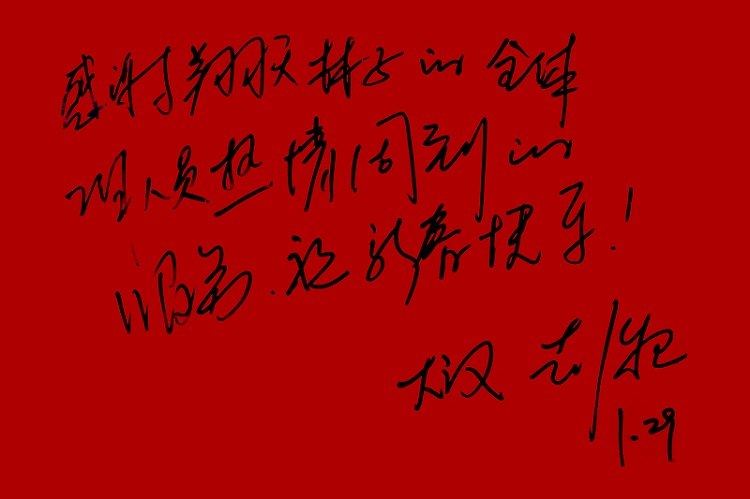 感谢翔天梯子的全体
理人员热情周到的
服务.祝新春快乐!
大汉 志
1.29